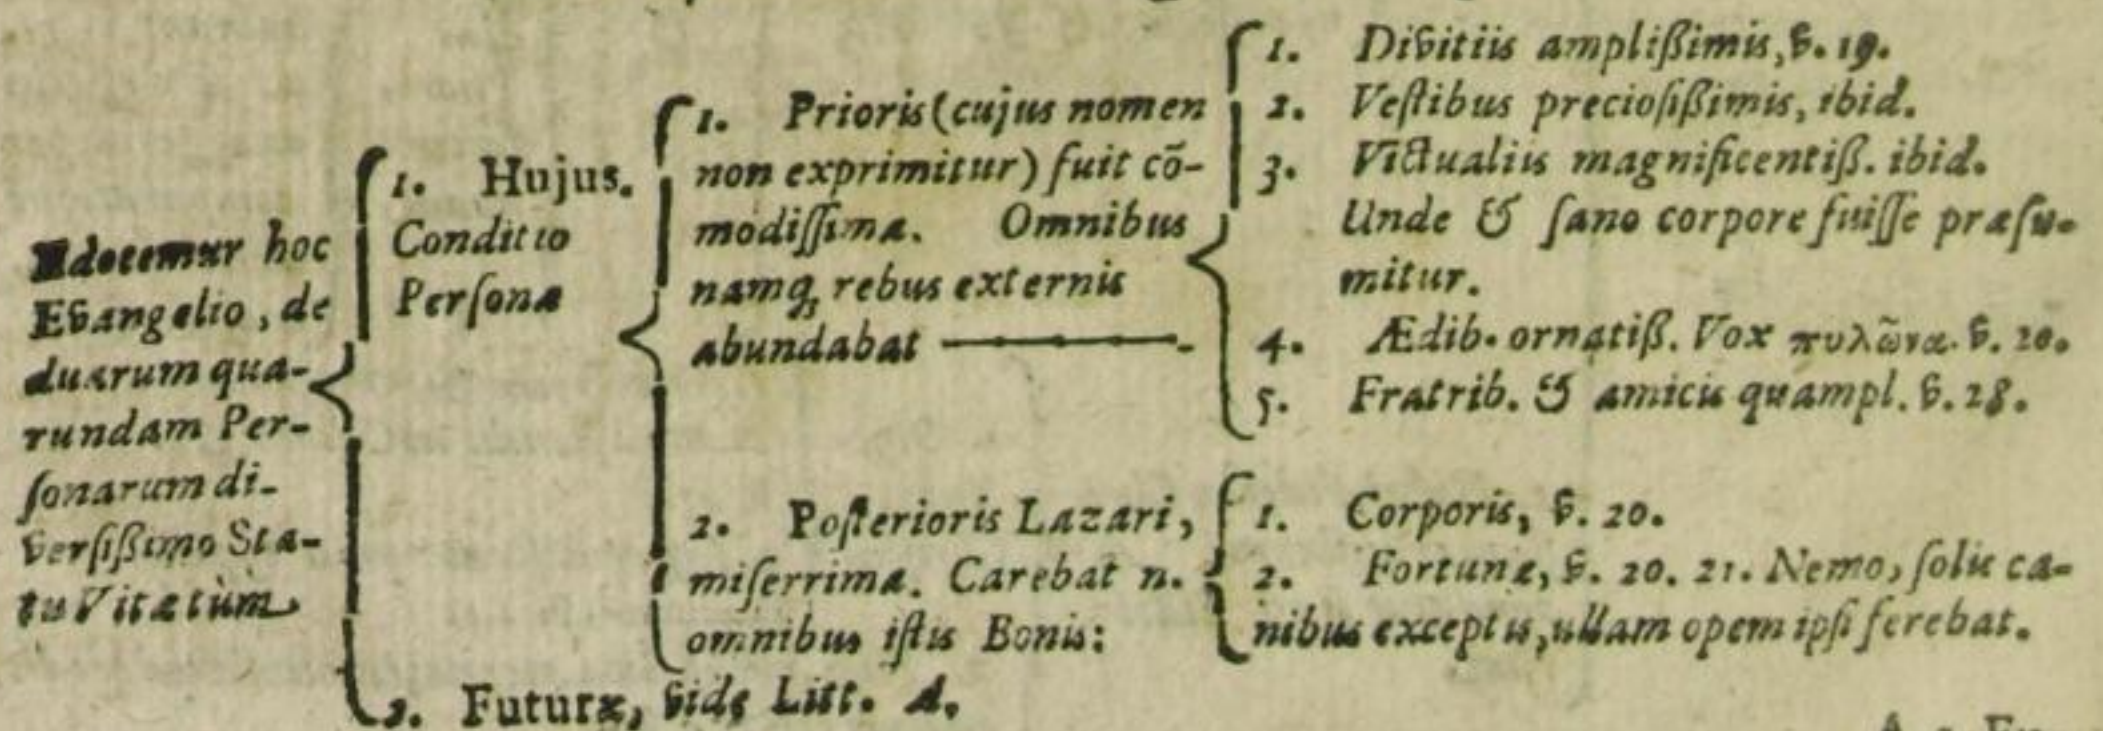 Edocemur hoc
Evangelio, de
duarum qua-
rundam Per-
sonarum di-
versißimo Sta-
tu Vitæ tùm
1. Hujus.
Conditio
Personæ
1. Prioris (cujus nomen
non exprimitur) fuit cõ-
modissima. Omnibus
namq; rebus externis
abundabat
1. Divitiis amplißimis, v. 19.
2. Vestibus preciosißimis, ibid.
3. Victualiis magnificentiß. ibid.
Unde & sano corpore fuisse præsu-
mitur.
4. Ædib. ornatiß. Vox πυλῶνα. v. 20.
5. Fratrib. & amicis quampl. v. 28.
2. Posterioris Lazari,
miserrima. Carebat n.
omnibus istis Bonis:
1. Corporis, v. 20.
2. Fortunæ, v. 20. 21. Nemo, solis ca-
nibus exceptis, ullam opem ipsi ferebat.
2. Futuræ, vide Litt. A.